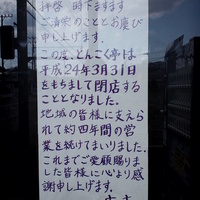 拝啓 時下ますます
ご清栄のこととお慶び
申し上げます。
この度、とんこく亭は
平成24年3月31日
をもちまして閉店する
こととなりました。
地域の皆様に支えら
れて約四年間の営
業を続けてまいりました。
これまでご愛顧賜りま
した皆様に心より感
謝申し上げます。